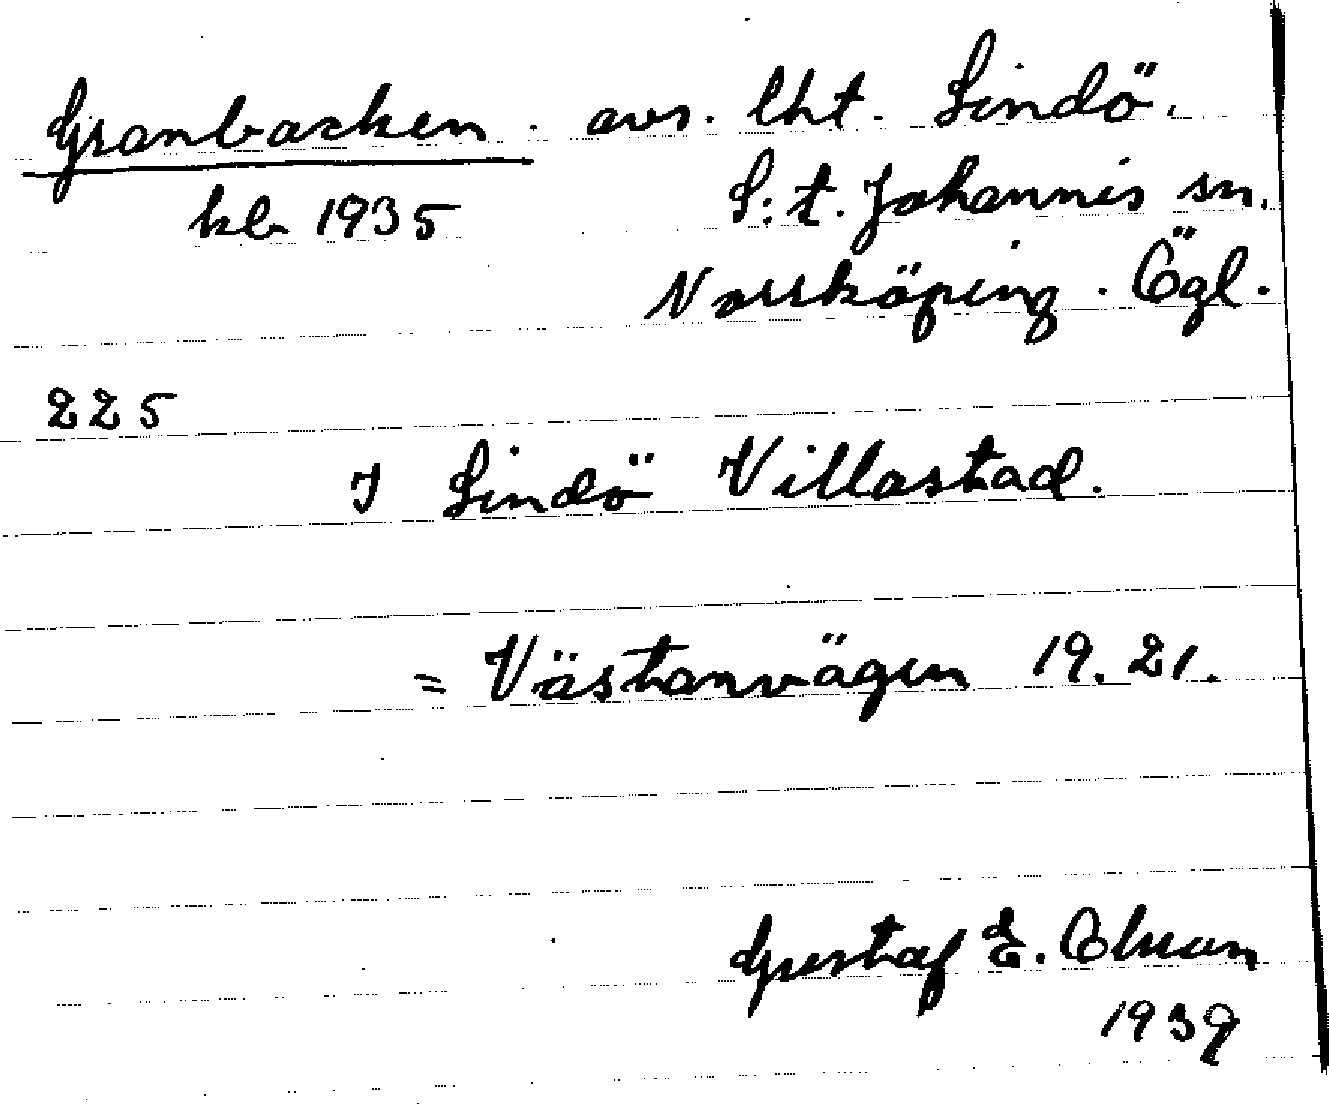 Granbacken. avs. lht. Lindö.
kb 1935 S:t. Johannis sn.
Norrköping. Ögl.
225
I Lindö Villastad.
= Västanvägen 19. 21.
Gustaf E. Olsson
1939